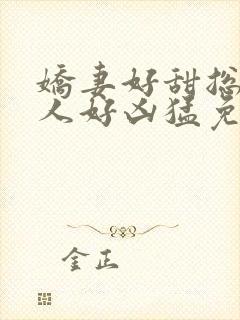 嬌妻好甜捴
人好凶猛免
金正